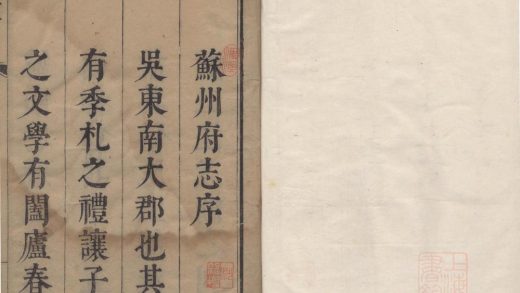 蘇州府志序
吳東南大郡也其
有季札之禮讓子
之文學有闔廬春